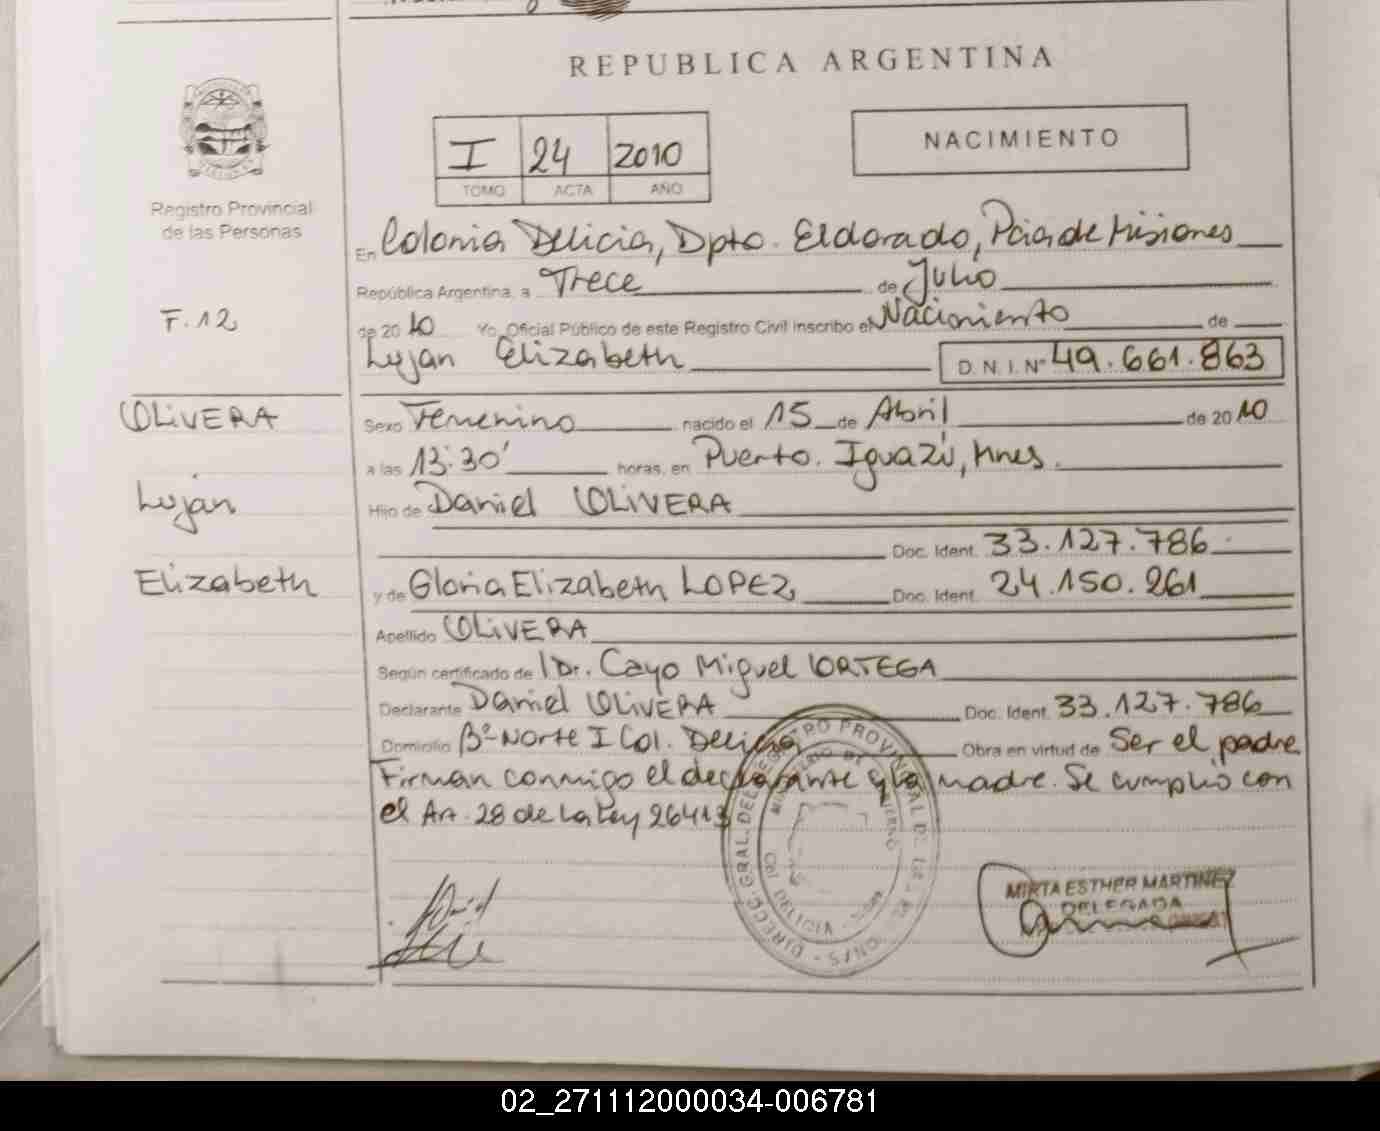 REPUBLICA ARGENTINA
I 24 2010
TOMO ACTA AÑO
NACIMIENTO
Registro Provincial
de las Personas
En Colonia Delicia, Dpto. Eldorado, Pcia de Misiones
República Argentina, a Trece de Julio
F.12
de 2010 Yo, Oficial Público de este Registro Civil inscribo el Nacimiento de
Lujan Elizabeth D. N. I. Nº 49.661.863
OLIVERA
Sexo Femenino nacido el 15 de Abril de 2010
a las 13:30' horas, en Puerto. Iguazú, Mnes.
Luján
Hijo de Daniel OLIVERA
Doc. Ident. 33.127.786
Elizabeth
y de Gloria Elizabeth LOPEZ, Doc. Ident. 24.150.261
Apellido OLIVERA
Según certificado de Dr. Cayo Miguel ORTEGA
Declarante Daniel OLIVERA Doc. Ident. 33.127.786
Domicilio Bº Norte I Col. Delicia Obra en virtud de Ser el padre
Firman conmigo el declarante y la madre. Se cumplió con
el Art. 28 de la Ley 26413
DIRECC. GRAL. DEL REGISTRO PROVINCIAL DE LAS PERSONAS
MINISTERIO DE GOBIERNO
Col. DELICIA
MIRTA ESTHER MARTINEZ
DELEGADA
02_271112000034-006781